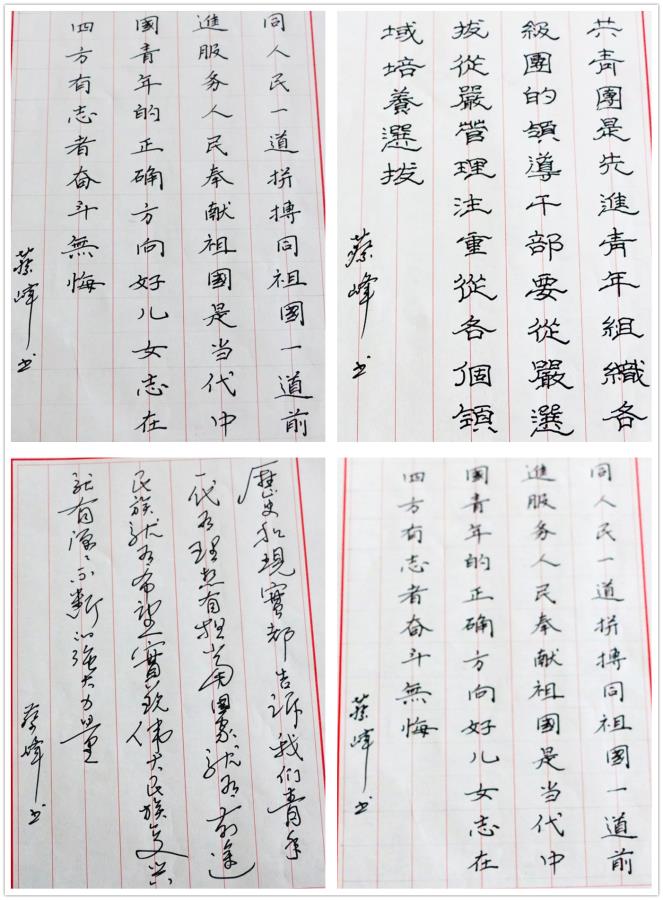 同人民一道拼搏同祖國一道前
進服务人民奉献祖國是当代中
國青年的正确方向好儿女志在
四方有志者奋斗無悔
蔡峰书
共青團是先進青年組織各
級團的領導干部要從嚴選
拔從嚴管理注重從各個領
域培養選拔
蔡峰书
歷史和現實都告訴我们青年
一代有理想有担當國家就有前途
民族就有希望實現偉大民族复兴
就有源〻不断的强大力量
蔡峰书
同人民一道拼搏同祖國一道前
進服务人民奉献祖國是当代中
國青年的正确方向好儿女志在
四方有志者奋斗無悔
蔡峰书